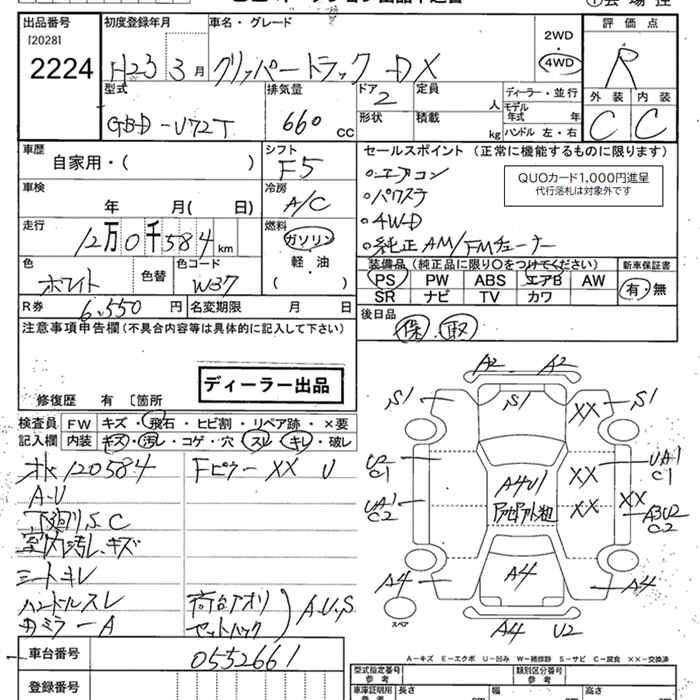 出品番号 初度登録年月 車名・グレード 評価点
[2028] 2WD
2224 H23 3月 クリッパートラック DX 4WD R
外装 内装
C C
型式 排気量 ドア 定員 ディーラー・並行
GBD-U72T 660 CC 2 人 モデル年式 年
形状 積載 kg ハンドル 左・右
車歴 シフト セールスポイント (正常に機能するものに限ります)
自家用・( ) F5 エアコン
QUOカード1,000円進呈
代行落札は対象外です
車検 冷房 パワステ
年 月( 日) A/C 4WD
走行 燃料 純正AM/FMチューナー
12万0千584km ガソリン
軽・油
( )
装備品 (純正品に限り○をつけてください) 新車保証書
PS PW ABS エアB AW 有・無
SR ナビ TV カワ
色 色替 色コード
ホワイト W37
R券 6,550円 名変期限 月 日
後日品
保 取
注意事項申告欄(不具合内容等は具体的に記入して下さい)
ディーラー出品
修復歴 有 〔箇所
検査員 FW キズ・飛石・ヒビ割・リペア跡・×要
記入欄 内装 キズ・汚レ・コゲ・穴 スレ キレ・破レ
メーター120584 Fピラー XX U
A-U
下廻りS.C
室内汚レ.キズ
シートキレ
ハンドルスレ 荷台アオリ
カミラーA セットバック
A.U.S
A2 A2
S1 S1 XX S1
U2 C1 XX UA1 C1
UA1 C2 A4U1 XX XX A3U2 C2
A4 A4 A4
スペア A4 U2
A-キズ E-エクボ U-凹み W-補修跡 S-サビ C-腐食 XX-交換済
車台番号 0552661
登録番号
型式指定番号 類別区分番号
参考 参考
車庫証明用 長さ 幅 高さ
参考 cm cm cm